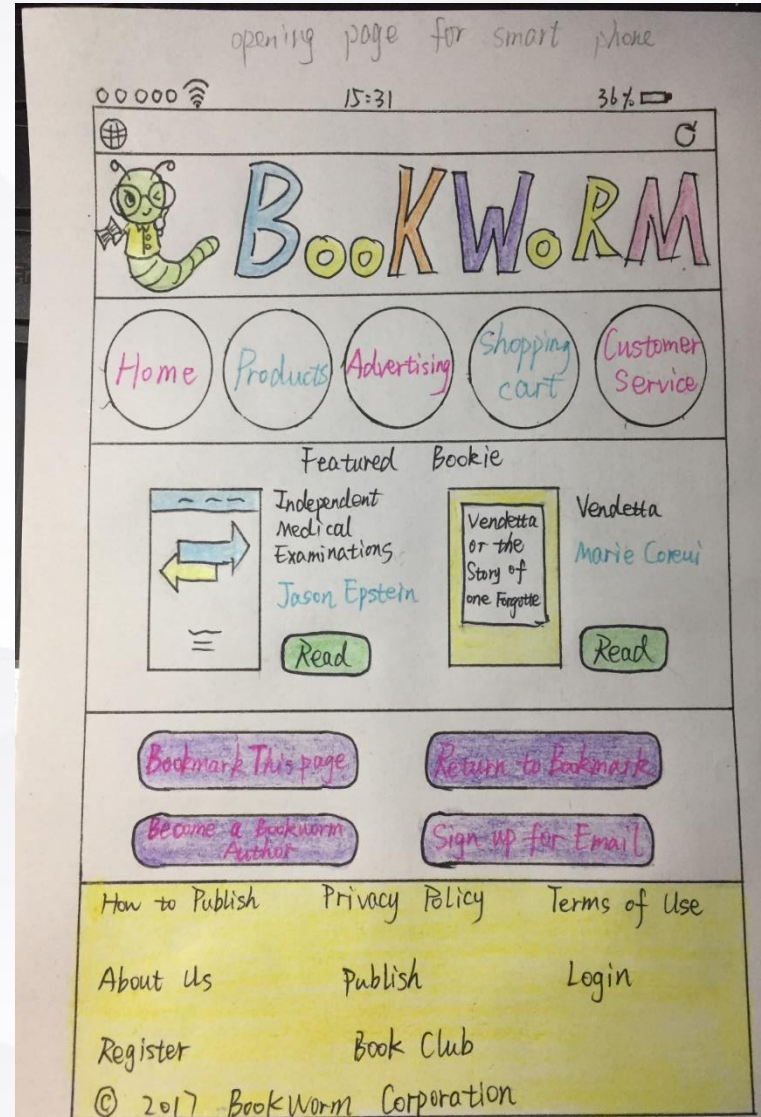 opening page for smart phone
15:31 36%
BooKWoRM
Home Products Advertising Shopping cart Customer Service
Featured Bookie
Independent
Medical
Examinations
Jason Epstein
Read
Vendetta
or the
Story of
one Forgotte
Vendetta
Marie Coreui
Read
Bookmark This page Return to Bookmark
Become a Bookworm
Author
Sign up for Email
How to Publish Privacy Policy Terms of Use
About Us Publish Login
Register Book Club
© 2017 BookWorm Corporation